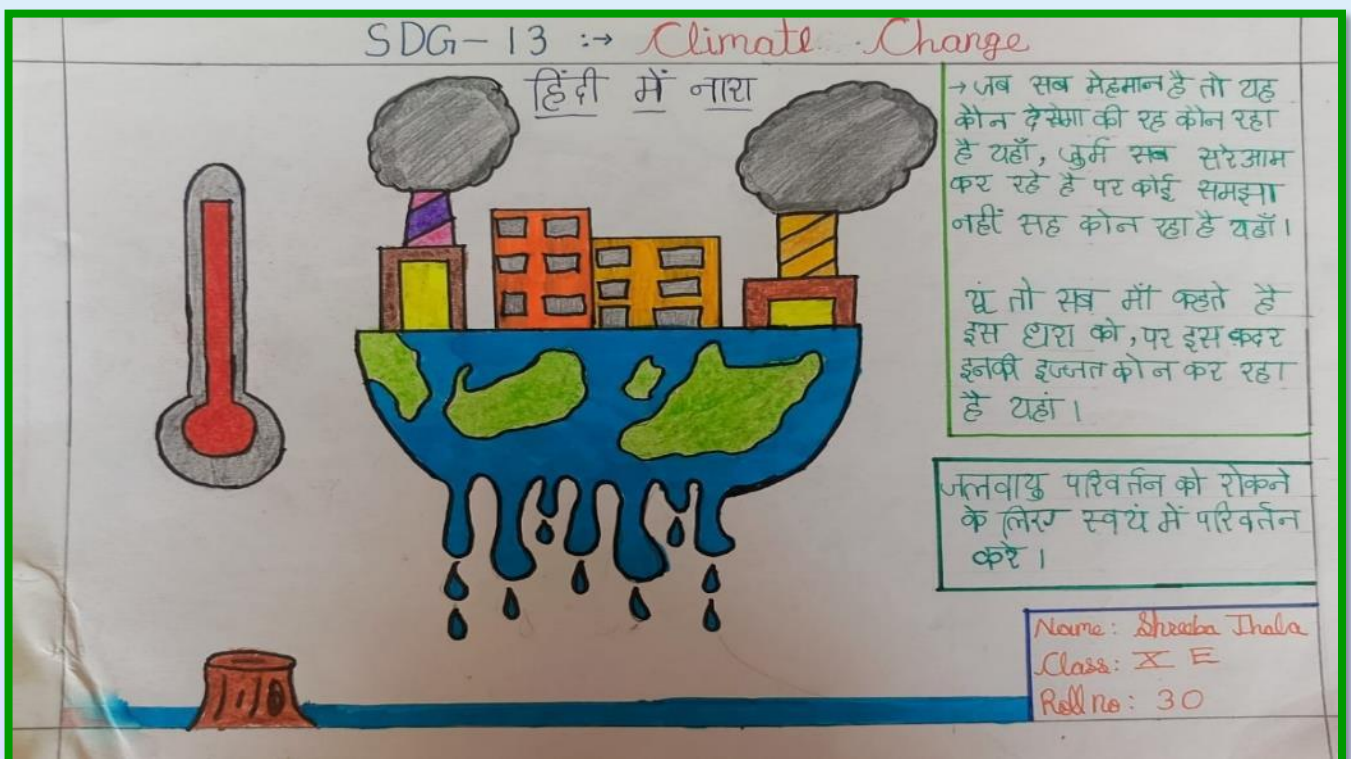 SDG-13 :→ Climate Change
हिंदी में नारा
→ जब सब मेहमान है तो यह
कौन देखेगा की रह कौन रहा
है यहाँ, जुर्म सब सरेआम
कर रहे है पर कोई समझा
नहीं सह कोन रहा है यहाँ।
यूं तो सब माँ कहते है
इस धरा को, पर इस कदर
इनकी इज्जत कोन कर रहा
है यहां।
जलवायु परिवर्तन को रोकने
के लिए स्वयं में परिवर्तन
करे।
Name: Shreeba Jhala
Class: X E
Roll no: 30